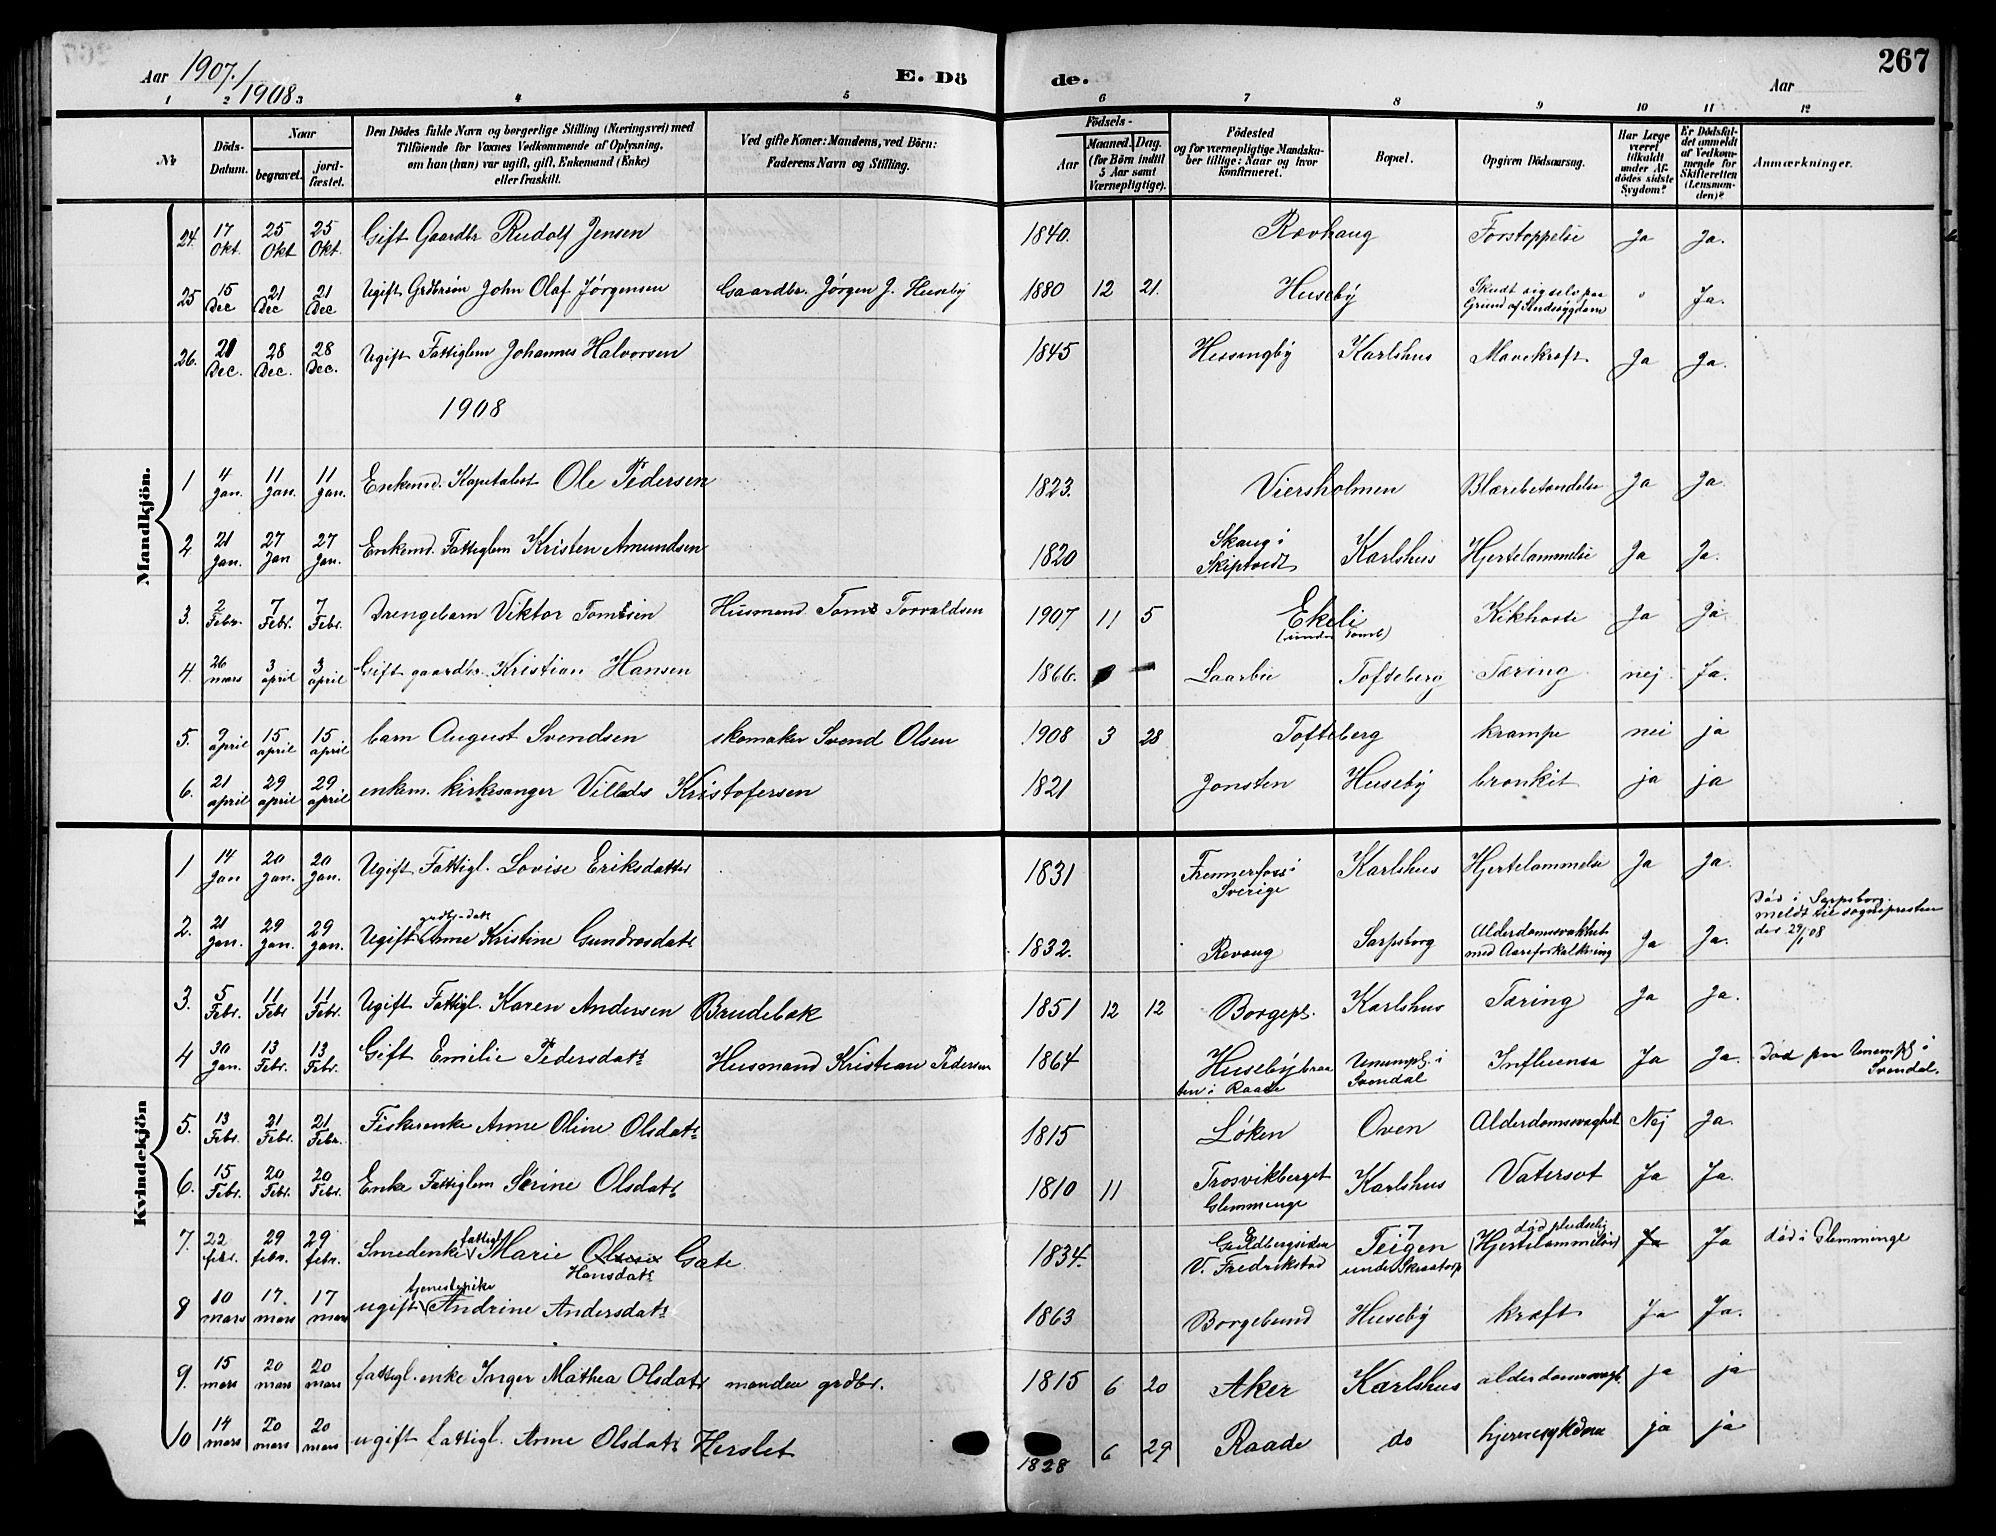 Aar 1907./1908 E. Dö de. Aar 267
1 2 3 4 5 6 7 8 9 10 11 12
No
Döds-Datum.
Naar
begravet.
jord-fæstet.
Den Dödes fulde Navn og borgerlige Stilling (Næringsvei) med
Tilföiende for Voxnes Vedkommende af Oplysning,
om han (hun) var ugift, gift, Enkemand (Enke)
eller fraskilt.
Ved gifte Koner: Mandens, ved Börn:
Faderens Navn og Stilling.
Födsels-
Aar
Maaned. Dag.
(for Börn indtil
5 Aar samt
Værnepligtige).
Födested
og for værnepligtige Mandska-
ber tillige: Naar og hvor
konfirmeret.
Bopæl.
Opgiven Dödsaarsag.
Har Læge
været
tilkaldt
under Af-
dödes sidste
Sygdom?
Er Dödsfal-
det anmeldt
af Vedkom-
mende for
Skifteretten
(Lensman-
den)?
Anmærkninger.
Mandkjön.
24. 17 Okt. 25 Okt 25 Okt. Gift Gaardbr Rudolf Jensen 1840. Rævhaug Forstoppelse Ja Ja.
25 15 Dec 21 Dec 21 Dec Ugift Grdbrsøn John Olaf Jørgensen Gaardbr. Jørgen J. Huseby 1880 12 21. Huseby Skudt sig selv paa Grund af Sindssygdom " Ja.
26. 21 Dec. 28 Dec. 28 Dec. Ugift Fattiglem Johannes Halvorsen 1845 Hessingby Karlshus Mavekræft Ja Ja.
1908
1 4 Jan. 11 Jan. 11 Jan. Enkemd. Kapitalist Ole Pedersen 1823. Viersholmen Blærebetændelse Ja Ja.
2 21 Jan. 27 Jan 27 Jan. Enkemd. Fattiglem Kristen Amundsen 1820 Skaug i Skiptvedt Karlshus Hjertelammelse Ja Ja.
3. 2 Febr. 7 Febr. 7 Febr. Drengebarn Viktor Tomesen Husmand Toms Torvaldsen 1907 11 5 Ekeli (under Tomb) Kikhoste Ja Ja.
4. 26 mars 3 april 3 april Gift gaardbr. Kristian Hansen 1866. Laarbu Tofteberg Tæring nej. Ja.
5. 9 april 15 april 15 april barn August Svendsen skomaker Svend Olsen 1908 3 28 Tofteberg krampe nei ja
6. 21 april 29 april 29 april enkem. kirkesanger Villads Kristofersen 1821 Jonsten Huseby bronkit ja ja
Kvindekjön
1 14 Jan 20 Jan. 20 Jan. Ugift Fattigl. Lovise Eriksdatter 1831 Sverige Karlshus Hjertelammelse Ja Ja.
2. 21 Jan. 29 Jan. 29 Jan. Ugift grdbr-datt Anne Kristine Gundrosdatr 1832. Revaug Sarpsborg Alderdomssvakhet med Aareforkalkning Ja Ja. Død i Sarpsborg. meldt til sognepresten der 29/1 08
3. 5 Febr. 11 Febr 11 Febr. Ugift Fattigl. Karen Andersen Brudebak 1851 12 12 Borgepl. Karlshus Tæring Ja Ja.
4 30 Jan. 13 Febr. 13 Febr. Gift Emilie Pedersdatr Husmand Kristian Pedersen 1864 Husebybraaten i Raade Unumpl. i Svendal Influensa Ja Ja. Død paa Unumpl i Svendal.
5. 13 Febr. 21 Febr. 21 Febr. Fiskerenke Anne Oline Olsdatr 1815 Løken Oven Alderdomssvaghet Nej Ja.
6. 15 Febr. 20 Febr. 20 Febr. Enke Fattiglem Serine Olsdatr 1810 11 Trosvikberget Glemminge Karlshus Vatersot Ja Ja.
7. 22 febr. 29 febr. 29 febr. Smedenke fattigl Marie Olsesen Hansdatr Gate 1834. Guldbergsiden V. Fredrikstad Teigen under Skraatorp død pludselig (Hjertelammelse) Ja Ja død i Glemminge
8 10 mars 17 mars 17 mars ugift tjenestepike Andrine Andersdatr 1863 Borgebund Huseby kræft Ja Ja.
9. 15 mars 20 mars 20 mars fattigl. enke Inger Mathea Olsdatr manden grdbr. 1815 6 20 Aker Karlshus alderdomssvagh. ja ja
10 14 mars 20 mars 20 mars ugift fattigl. Anne Olsdatr Herslet 1828 6 29 Raade do hjernesykdom ja ja